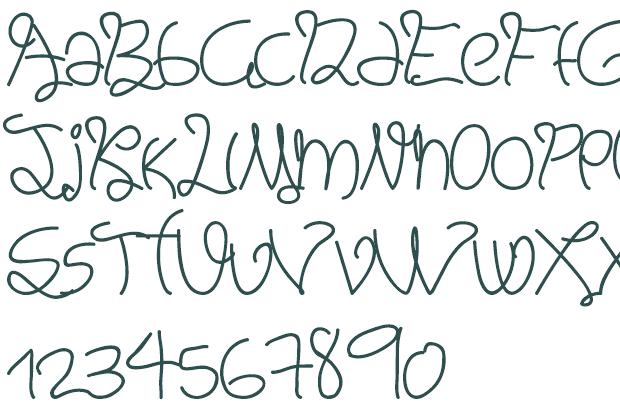 AaBbCcDdEeFfG
JjKkLlMmNnOoPp
SsTtUuVvWwXx
1234567890